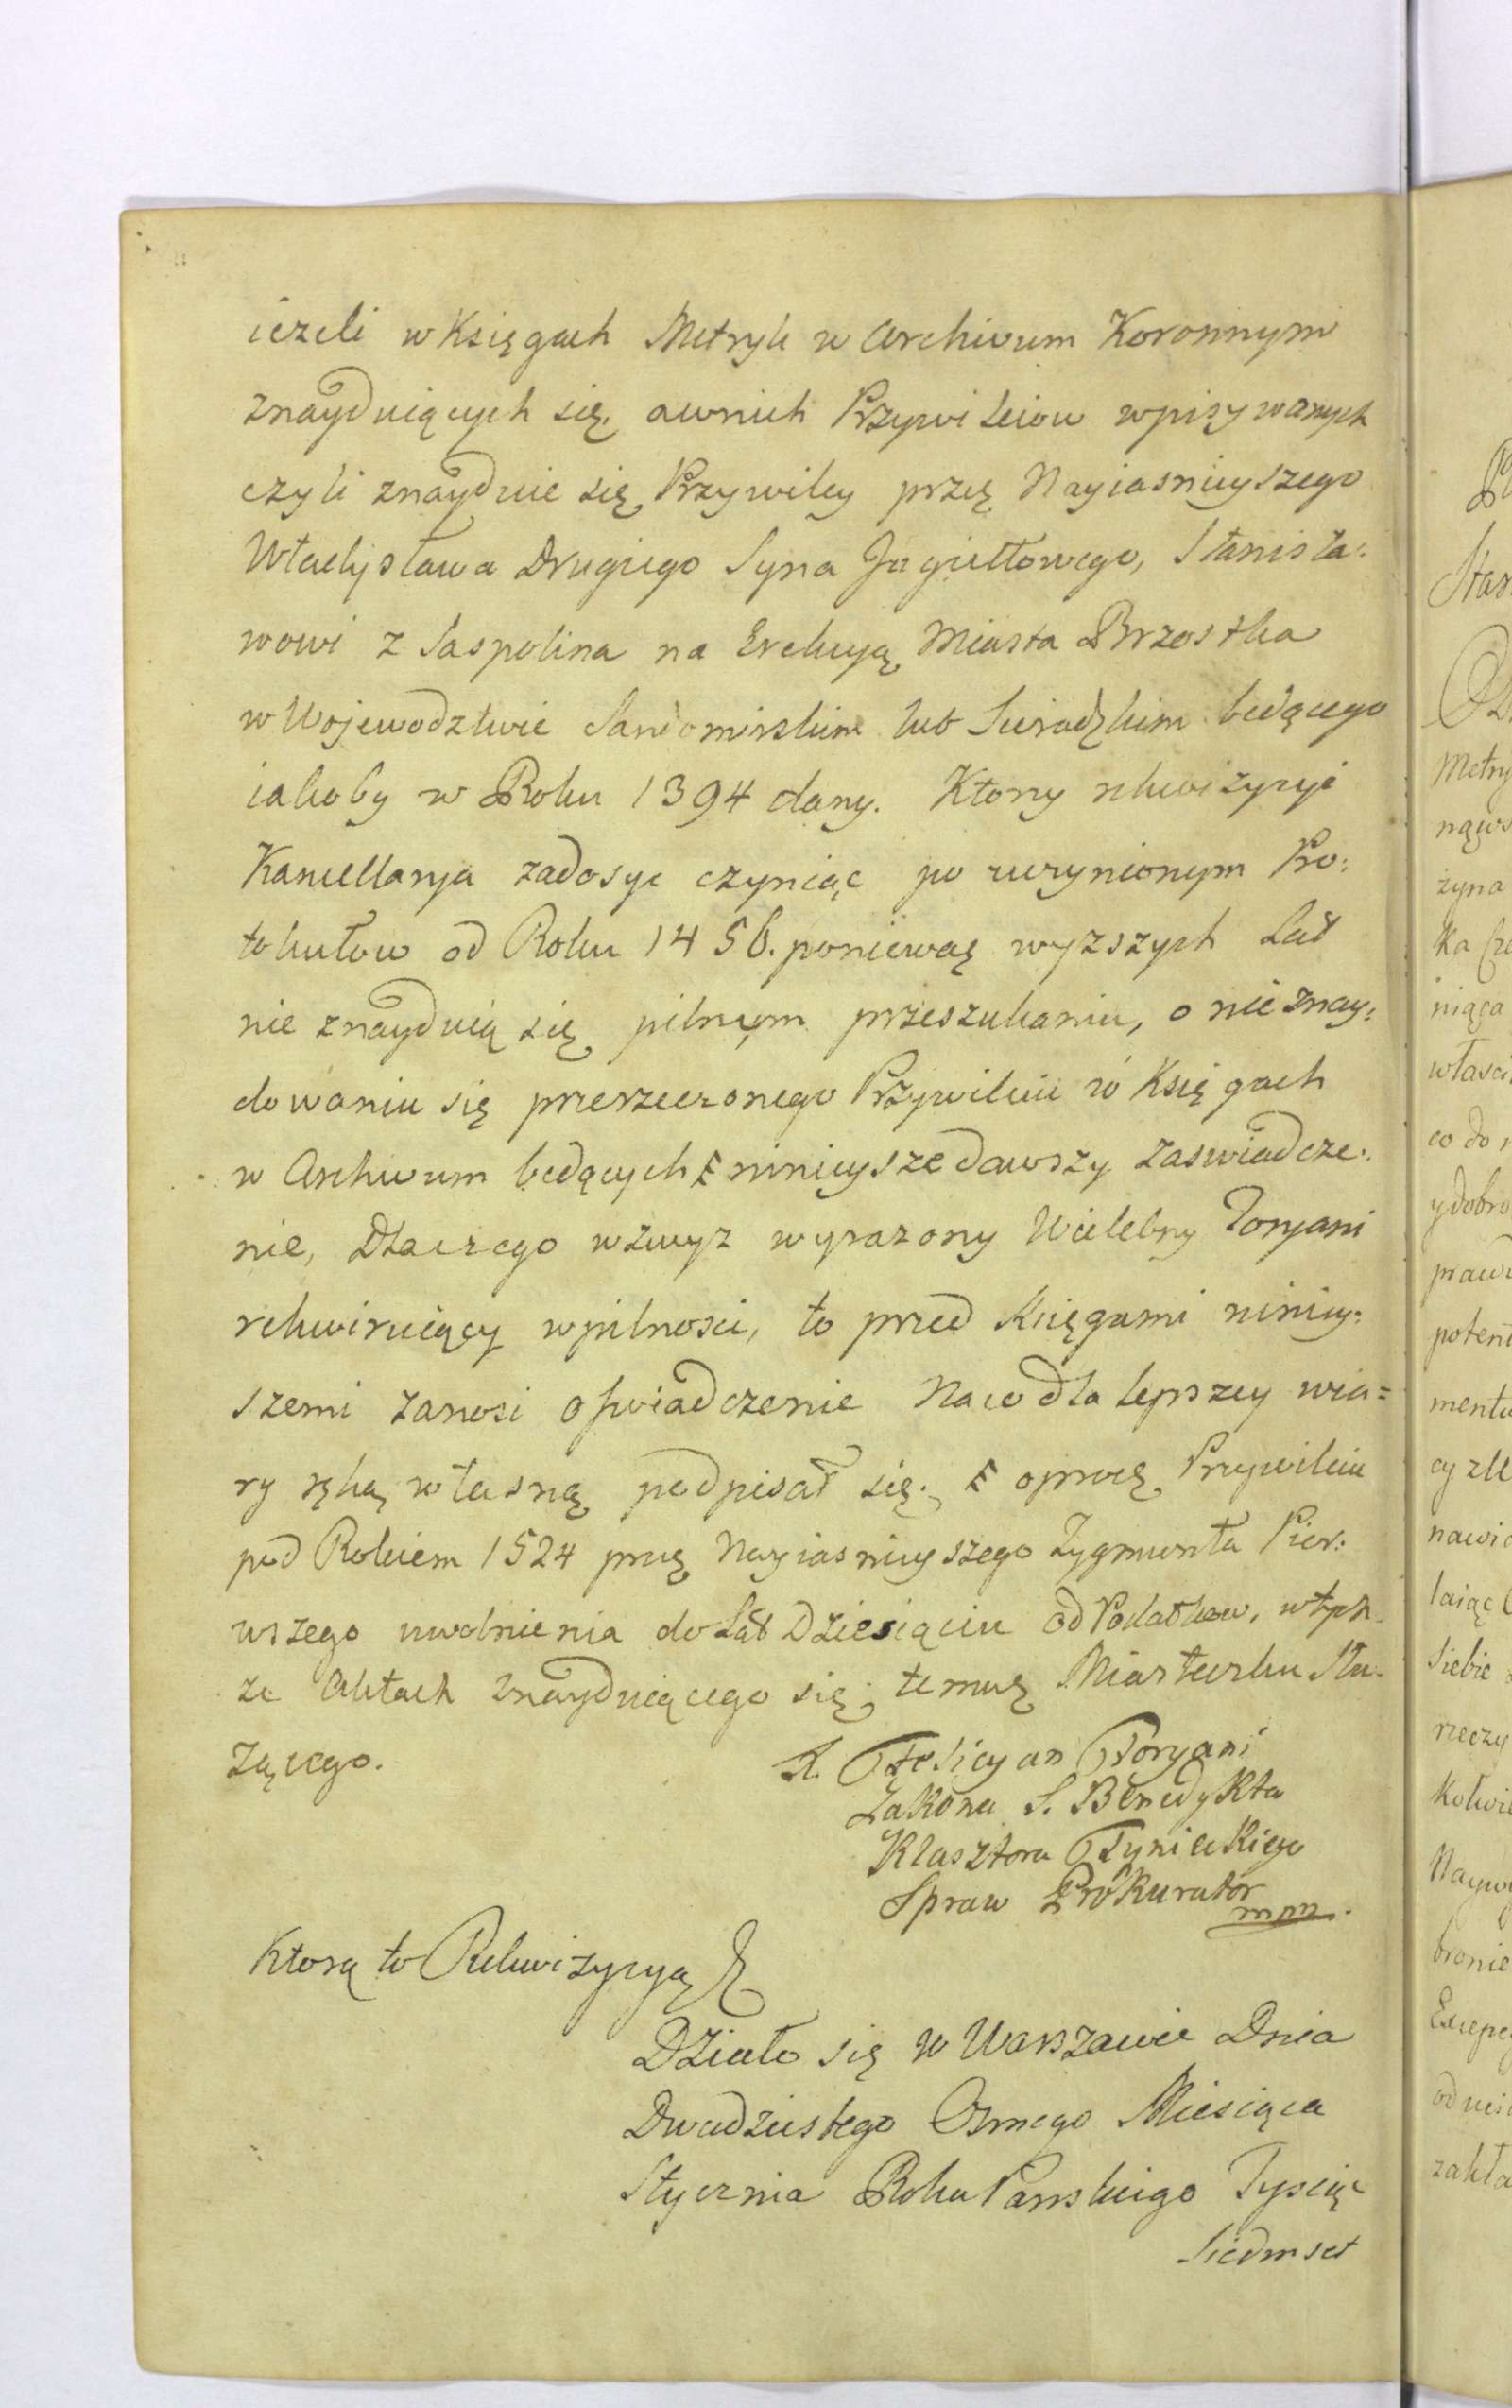 ieżeli w Księgach Metryk w Archivum Koronnym
znayduiących się, awnich Przywileiow wpisywanych
czyli znayduie się Przywiley przę Nayiasnieyszego
Władysława Drugiego Syna Jagiełłowego, Stanisła:
wowi z Jaspolina na Erekcyą Miasta Brzostka
w Wojewodztwie Sandomirskim lub Sieradzkim będącego
iakoby w Roku 1394 dany. Ktory rekwizycyi
Kancellarya zadosyc czyniąc po uczynionym Pro:
tokułow od Roku 1456. poniewaę wyzszych Lat
nie znayduią się pilnym przeszukaniu, o nie znay:
dowaniu się przerzeczonego Przywileiu w Księgach
w Archivum będących ninieysze dawszy zaswiadcze:
nie, Dlaczego wzwyz wyrazony Wielebny Toryani
rekwiruiący wpilnosci, to przed Księgami niniey:
szemi zanosi oswiadczenie Naco dla lepszey wia=
ry ręką własną podpisał się. oprocę Przywileiu
pod Rokiem 1524 przę Nayiasnieyszego Zygmunta Pier:
wszego uwolnienia do Lat Dziesiąciu od Podatkow, wtych
ze Aktach znayduiącego się, temuę Miasteczku słu:
zącego.
X. Felicyan Toryani
Zakonu S. Benedykta
Klasztoru Tynieckiego
Spraw Prokurator
mpm.
Ktorą to Rekwizycyą
Działo się w Warszawie Dnia
Dwudziestego Osmego Miesiąca
Stycznia Roku Panskiego Tysiąc
Siedmset